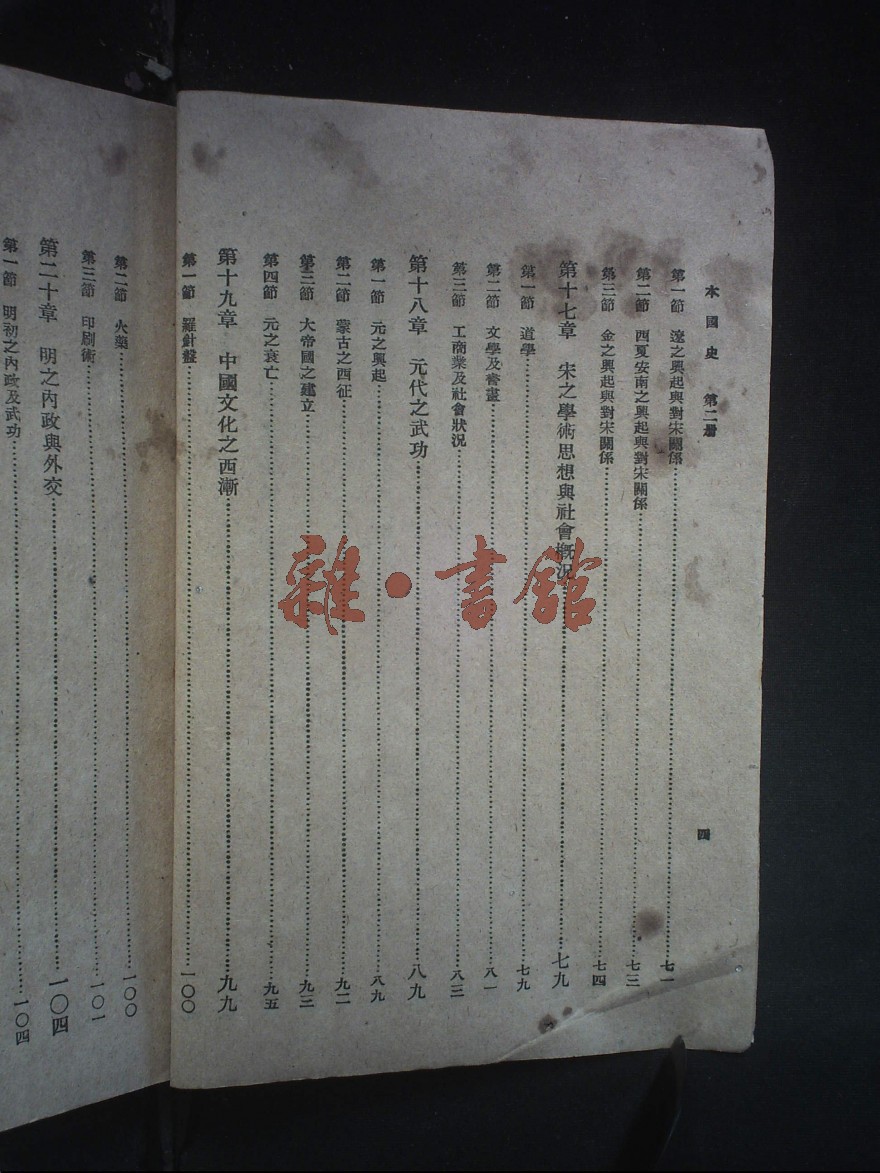 本國史 第二册 四
第一節 遼之興起與對宋關係 七一
第二節 西夏安南之興起與對宋關係 七三
第三節 金之興起與對宋關係 七四
第十七章 宋之學術思想與社會概況 七九
第一節 道學 七九
第二節 文學及書畫 八一
第三節 工商業及社會狀況 八三
第十八章 元代之武功 八九
第一節 元之興起 八九
第二節 蒙古之西征 九二
第三節 大帝國之建立 九三
第四節 元之衰亡 九五
第十九章 中國文化之西漸 九九
第一節 羅針盤 一〇〇
第二節 火藥 一〇〇
第三節 印刷術 一〇一
第二十章 明之內政與外交 一〇四
第一節 明初之內政及武功 一〇四
雜·書館